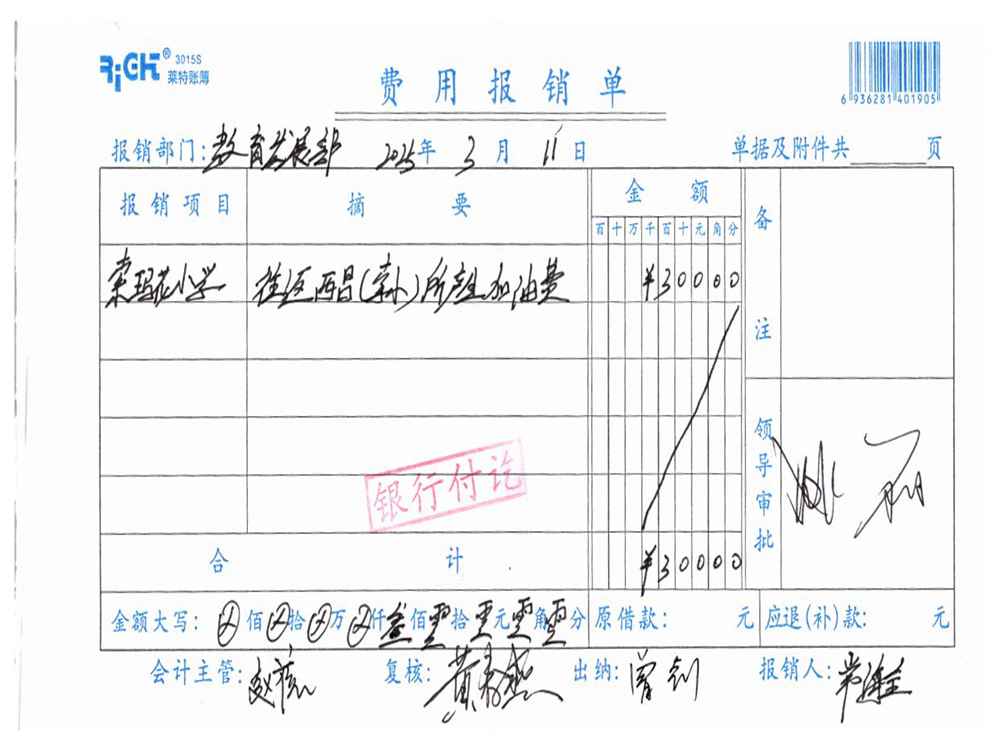 RiGHT® 3015S
莱特账簿
费用报销单
6 936281 401905
报销部门:教育发展部 2025年3月11日 单据及附件共 页
报销项目 摘要 金额 备注
百十万千百十元角分
索玛花小学 往返西昌(索小)所产生加油费 ¥30000
领导审批
银行付讫
合计 ¥30000
金额大写: ⊗佰⊗拾⊗万⊗仟叁佰零拾零元零角零分 原借款: 元 应退(补)款: 元
会计主管: 复核: 出纳:曾剑 报销人: